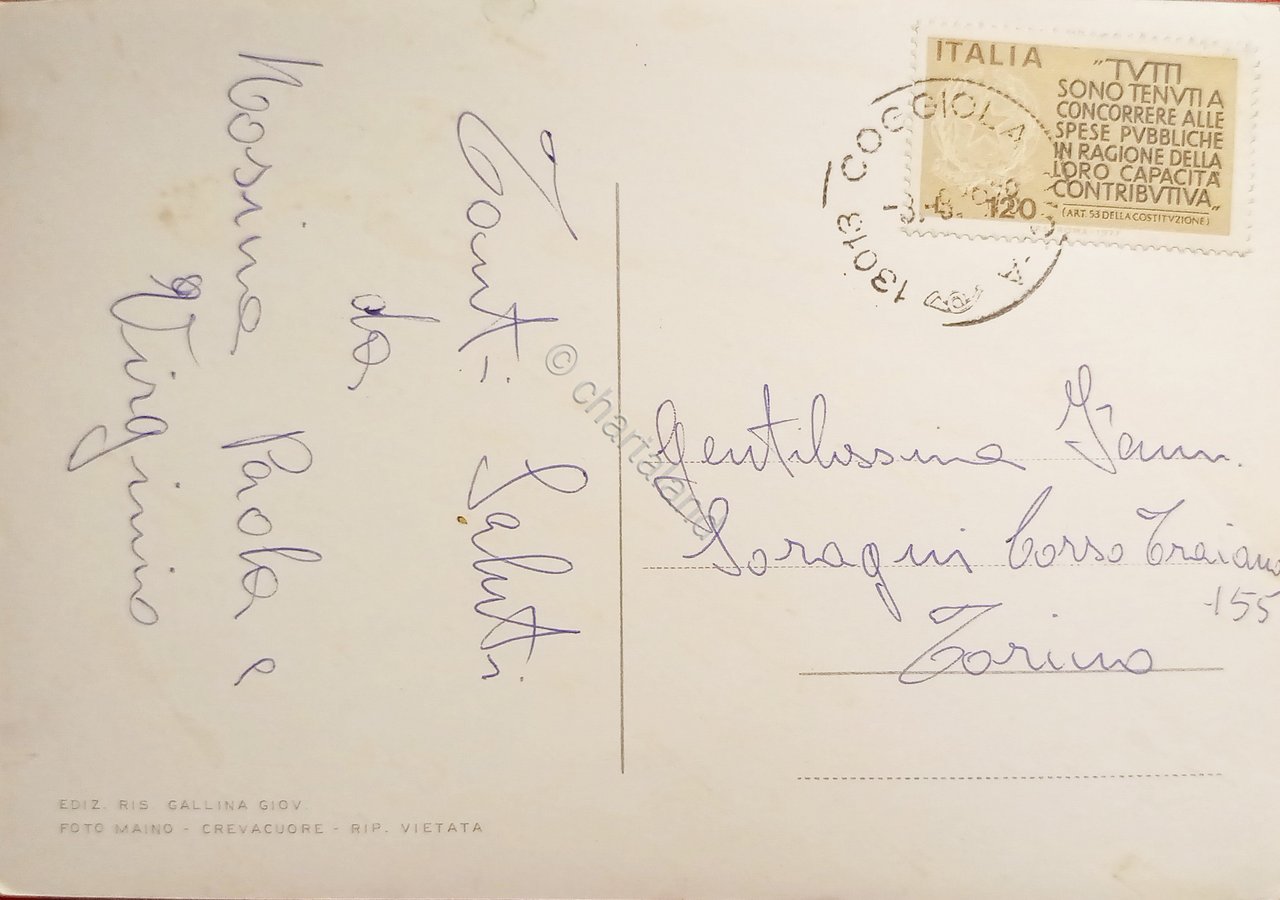 Tanti Saluti
da
Rosina Paola e
Virginio
EDIZ. RIS. GALLINA GIOV.
FOTO MAINO - CREVACUORE - RIP. VIETATA
ITALIA
"TVTTI
SONO TENVTI A
CONCORRERE ALLE
SPESE PVBBLICHE
IN RAGIONE DELLA
LORO CAPACITÀ
CONTRIBVTIVA"
(ART. 53 DELLA COSTITVZIONE)
120
13013 COGGIOLA
Gentilissima Fam.
Soragni Corso Traiano
155
Torino
© chartaland